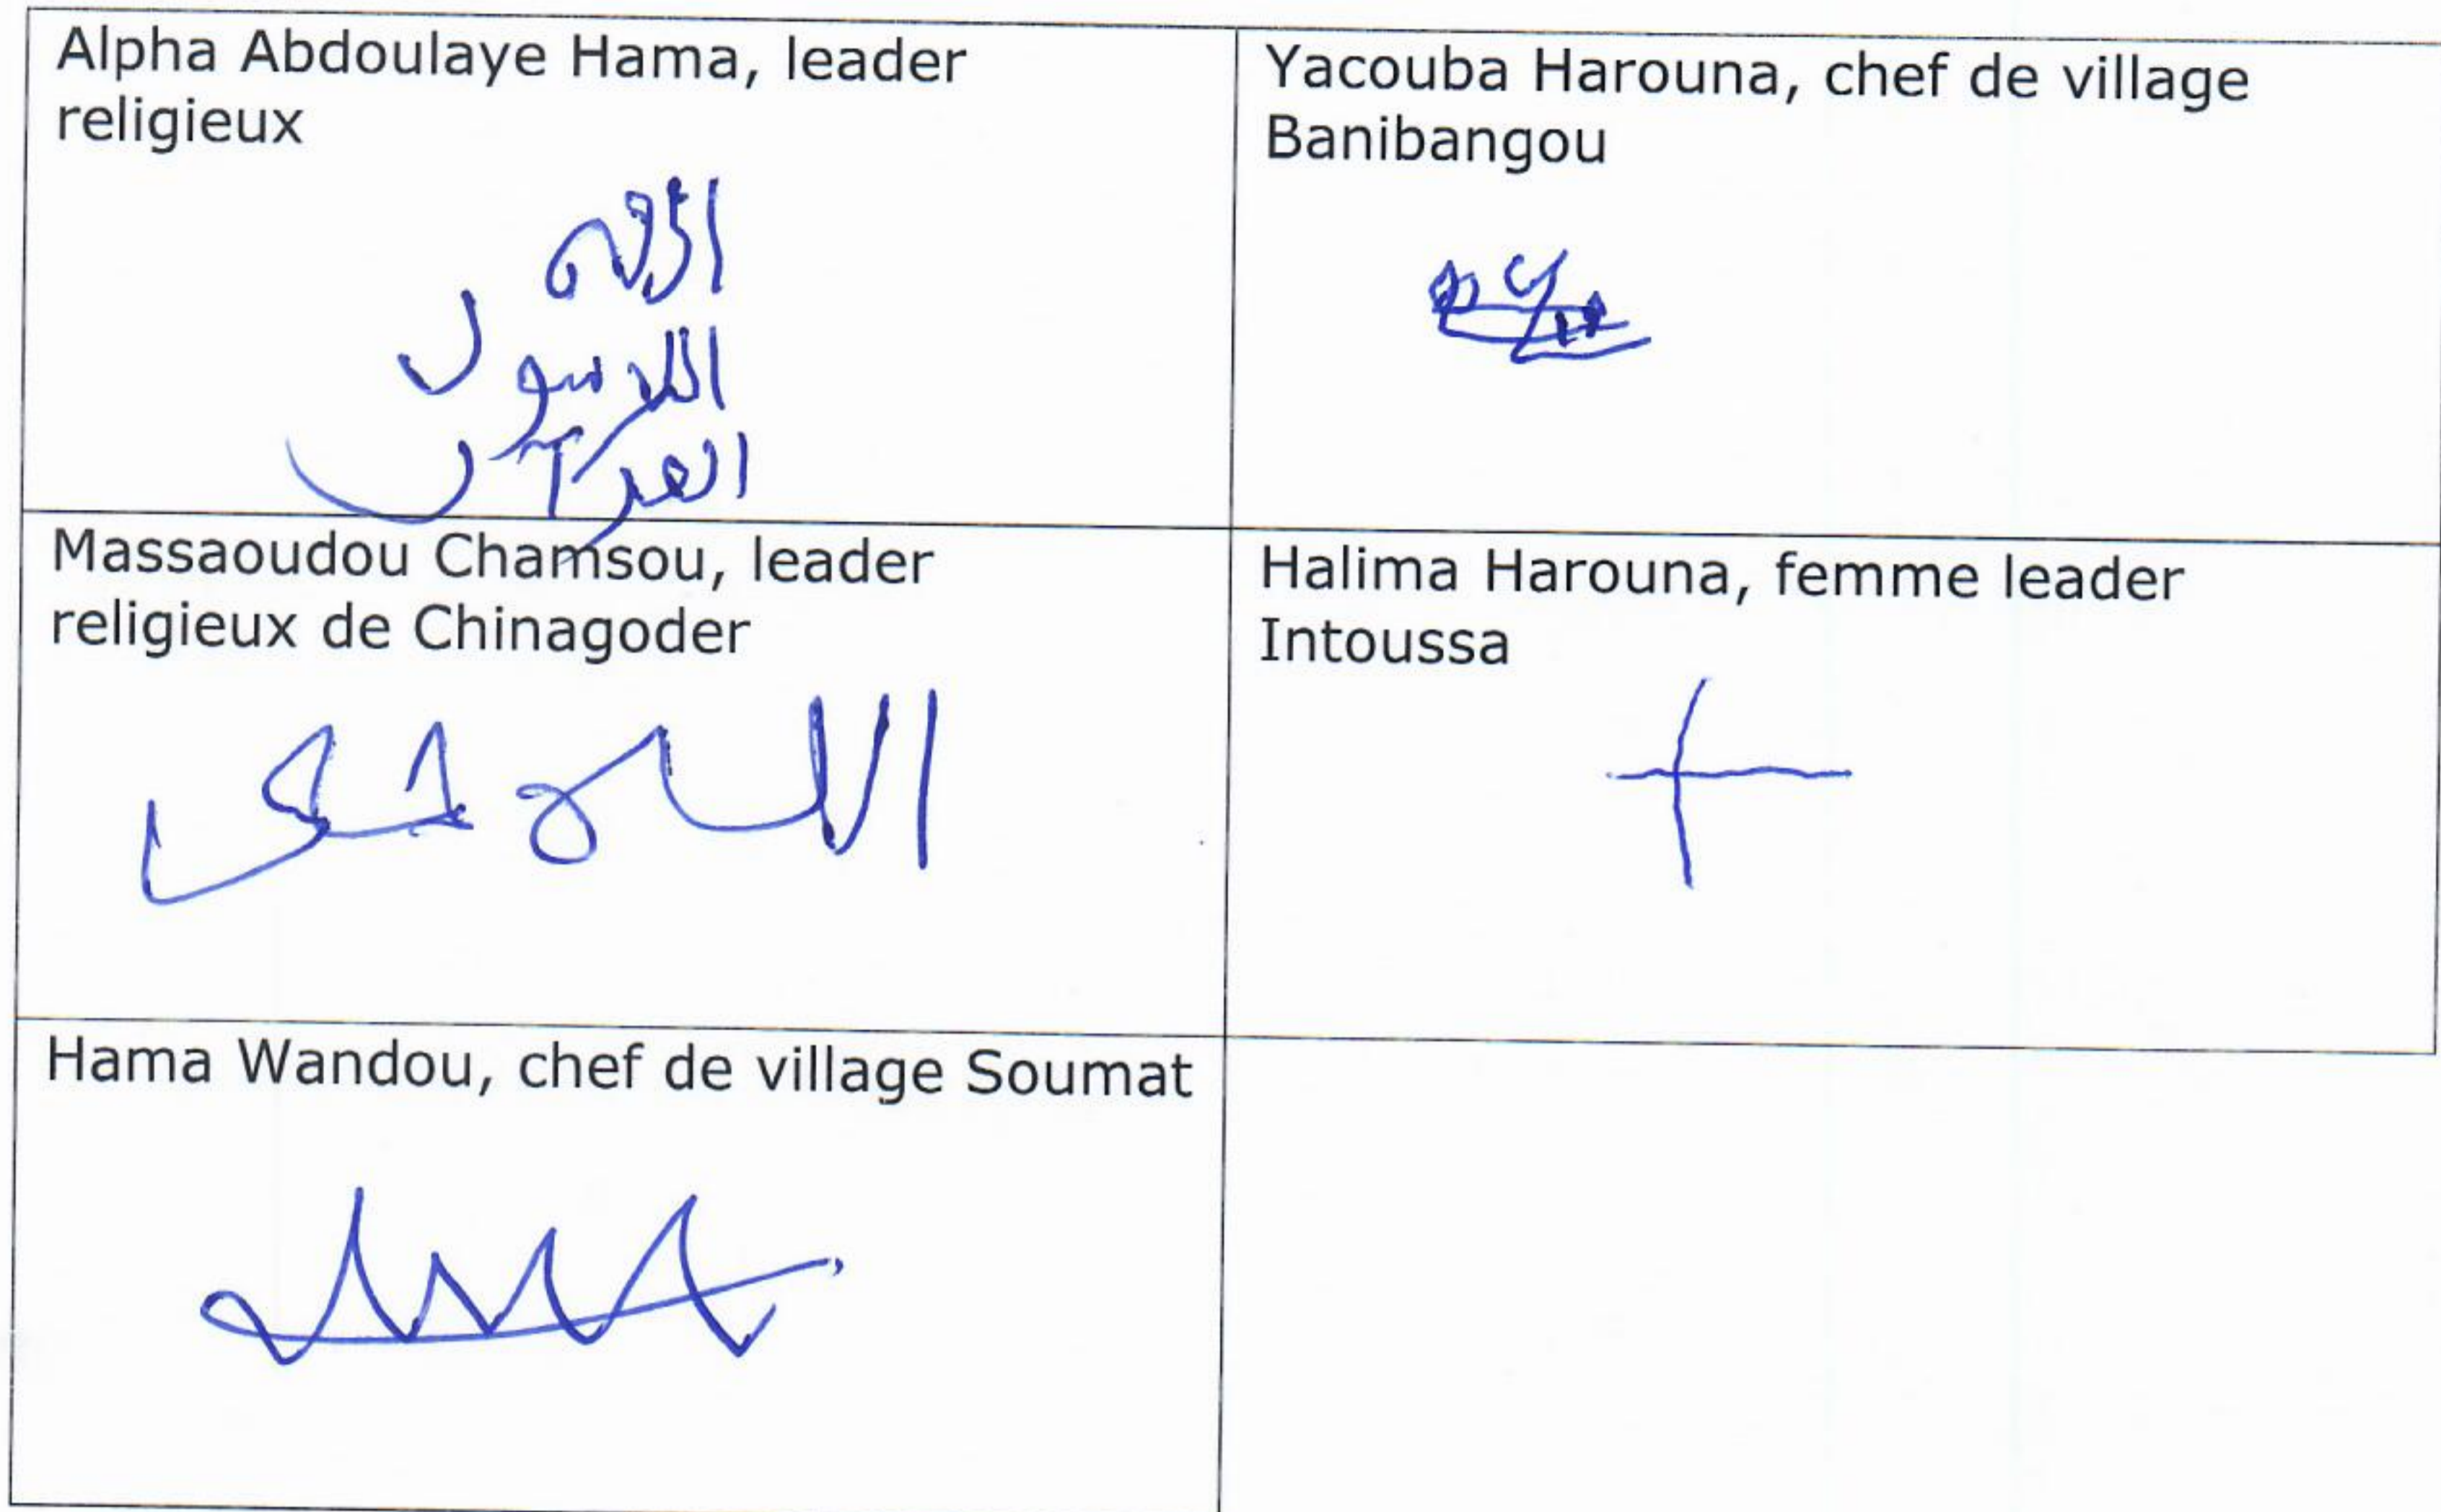 Alpha Abdoulaye Hama, leader
religieux
الرسول
Yacouba Harouna, chef de village
Banibangou
Massaoudou Chamsou, leader
religieux de Chinagoder
Halima Harouna, femme leader
Intoussa
Hama Wandou, chef de village Soumat